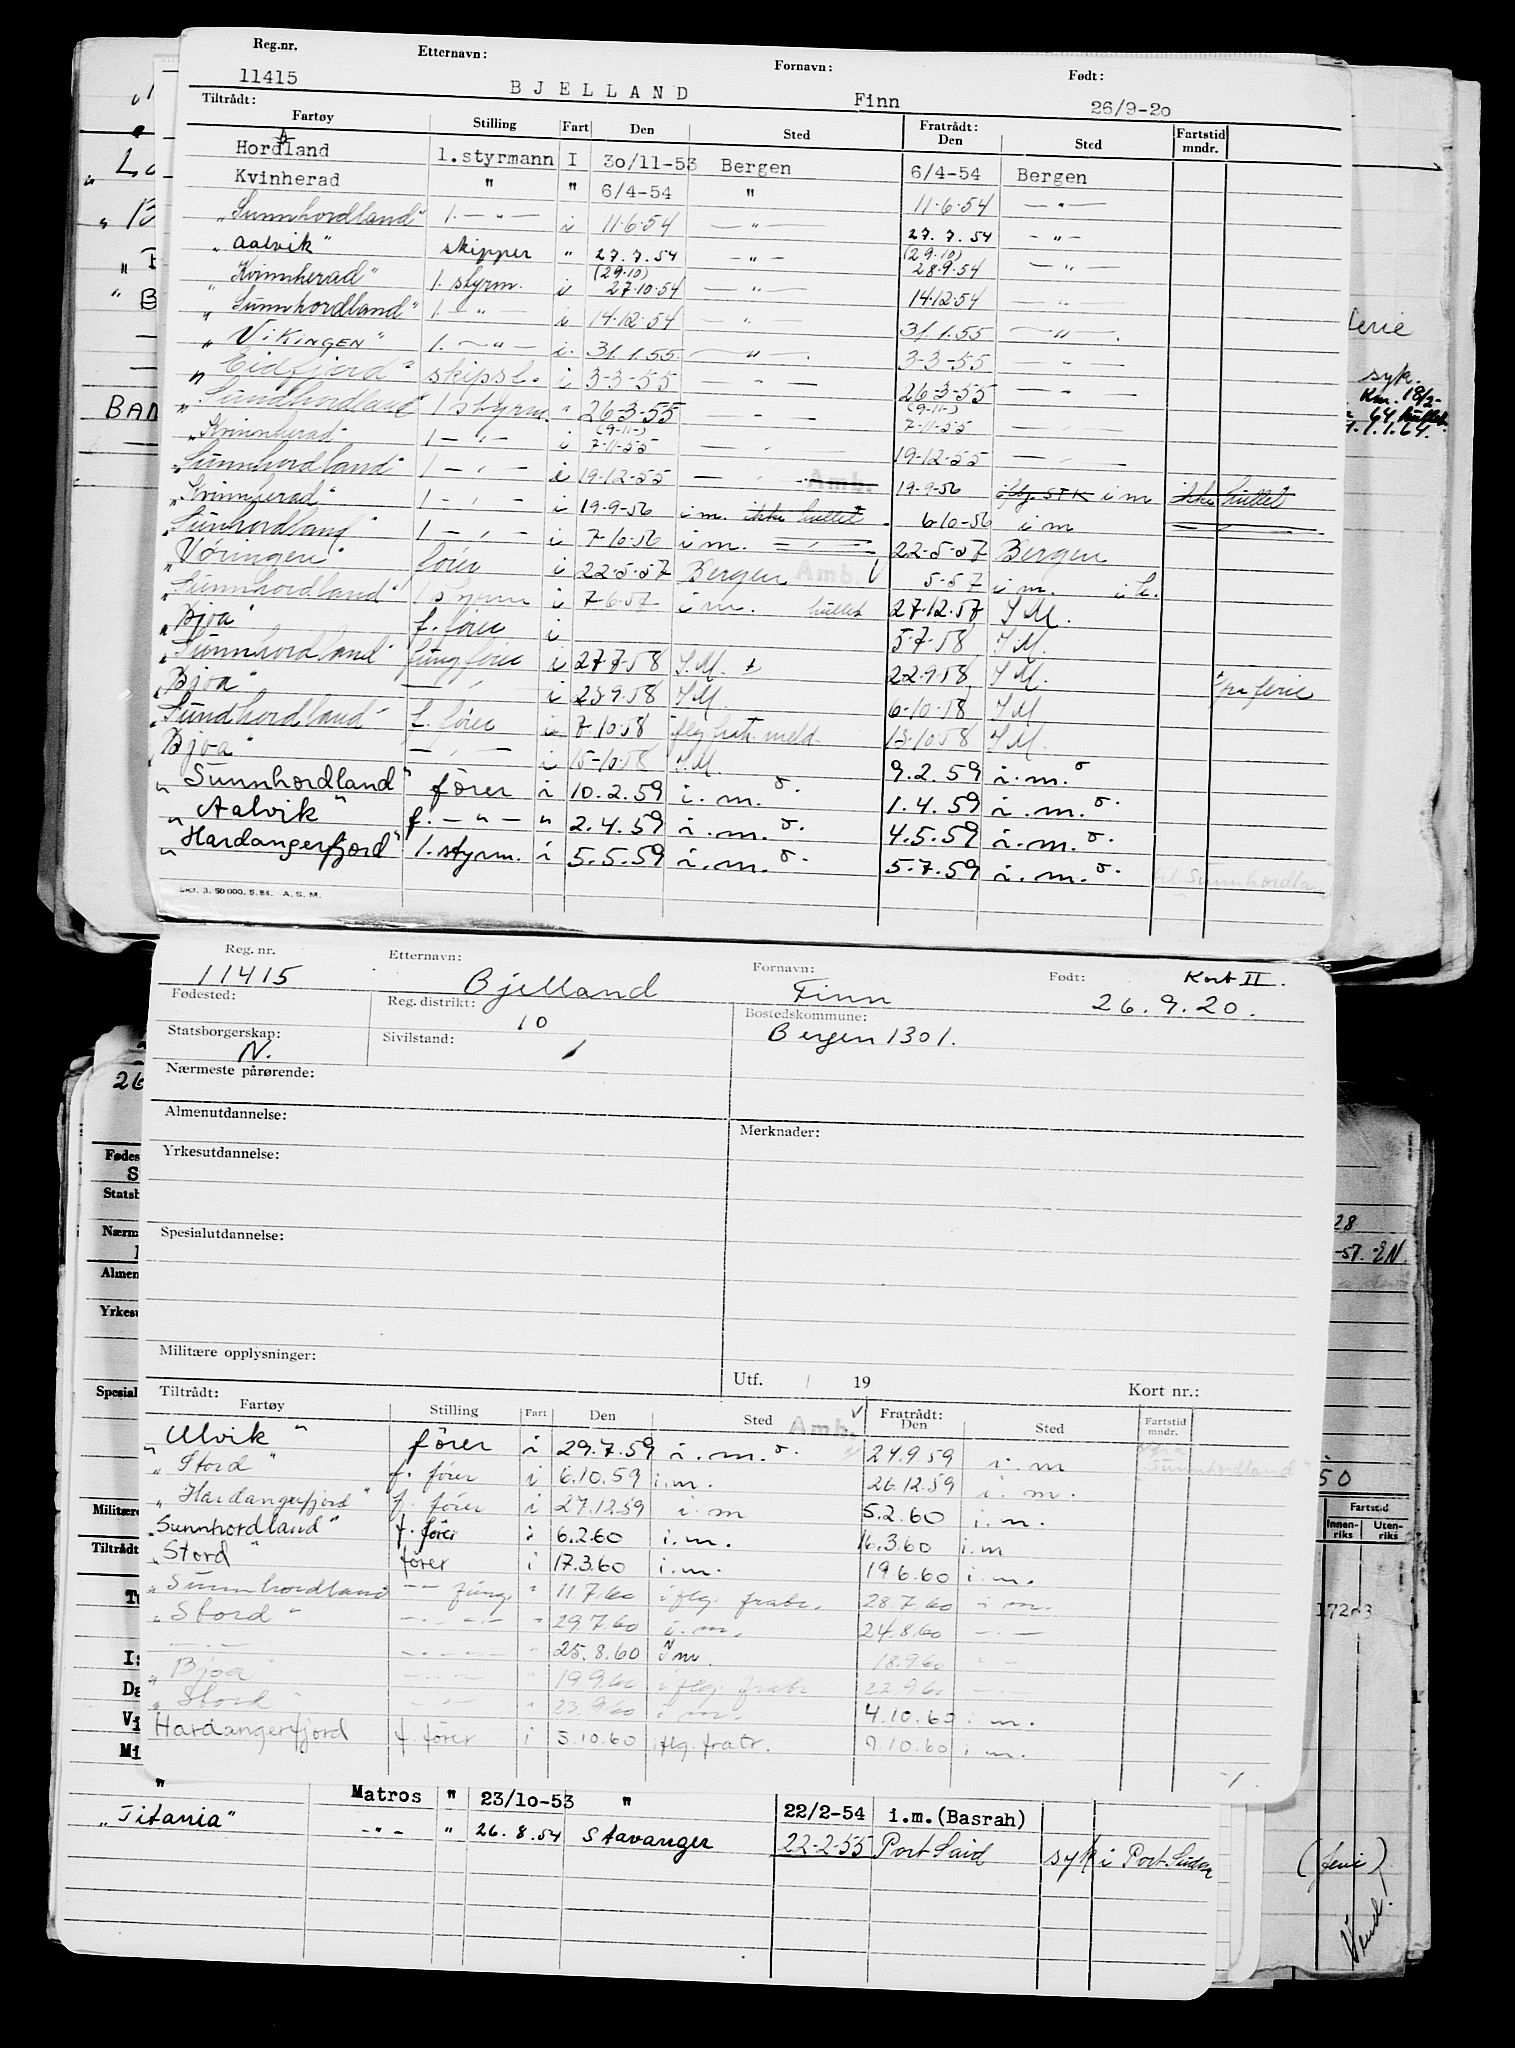 Reg.nr. Etternavn: Fornavn: Født:
11415 BJELLAND Finn 26/9-20
Tiltrådt: Fratrådt:
Fartøy Stilling Fart Den Sted Den Sted Fartstid mndr.
Hordaland 1.styrmann I 30/11-53 Bergen 6/4-54 Bergen
Kvinherad " " 6/4-54 " 11.6.54 — " —
"Sunnhordland" 1. — " — i 11.6.54 — " — 27.7.54 — " —
"Aalvik" skipper " 27.7.54 — " — (29.10) 28.9.54 — " —
"Kvinnherad" 1. styrm. i (29.10) 27.10.54 — " — 14.12.54 — " —
"Sunnhordland" 1. — " — i 14.12.54 — " — 31.1.55 — " —
"VIKINGEN" 1. — " — i. 31.1.55. — " — 3-3-55 — " —
"Eidfjord" skipsf. i 3-3-55 — " — 26-3-55 — " —
"Sundhordland" 1 styrm. " 26-3-55 — " — (9-11-) 7-11-55 — " —
"Kvinnherad" 1 — " — i (9-11-) 7-11-55 — " — 19-12-55 — " —
"Sunnhordland" 1 — " — i 19-12-55 — " — Amb. 19-9-56 iflg. STK i m ikke hullet
"Kvinnherad" 1 — " — i 19-9-56 i m. ikke hullet 6-10-56 i m
"Sunhordland" 1 — " — i 7-10-56 i m. — " — 22-5-57 Bergen
"Vøringen" fører i 22-5-57 Bergen Amb. 5-57 i m. i h.
"Sunnhordland" 1 styrm i 7-6-57 i m. hullet 27-12-57 I M.
"Bjoa" f. fører i 5-7-58 I M.
"Sunnhordland" fung fører i 27-7-58 I.M. 22-9-58 I M. pa ferie
"Bjoa" — " — i 23-9-58 I M. 6-10-58 I M
"Sundhordland" f. fører i 7-10-58 iflg. frat. meld. 13-10-58 I M.
"Bjoa" — " — i 15-10-58 I.M. 9.2.59 i.m.
"Sunnhordland" fører i 10.2.59 i.m. 1.4.59 i.m.
"Aalvik" f. — " — " 2.4.59 i.m. 4.5.59 i.m.
"Hardangerfjord" 1. styrm. i 5.5.59 i.m. 5.7.59 i.m. til Sunnhordland
Skt. 3. 50 000. 5. 54. A. S. M.
Reg. nr. Etternavn: Fornavn: Født: Kort II.
11415 Bjelland Finn 26.9.20.
Fødested: Reg. distrikt: 10 Bostedskommune: Bergen 1301.
Statsborgerskap: N. Sivilstand:
Nærmeste pårørende:
Almenutdannelse: Merknader:
Yrkesutdannelse:
Spesialutdannelse:
Militære opplysninger:
Utf. / 19 Kort nr.:
Tiltrådt: Fratrådt:
Fartøy Stilling Fart Den Sted Amb. Den Sted Fartstid mndr.
"Ulvik" fører i 29.7.59 i.m. 24.9.59 i.m fra Sunnhordland"
"Stord" f. fører i 6.10.59 i.m. 26.12.59 i.m.
"Hardangerfjord" f. fører i 27.12.59 i m 5.2.60 i.m.
"Sunnhordland" f. fører i 6.2.60 i.m. 16.3.60 i.m
"Stord" fører i 17.3.60 i.m. 19.6.60 i.m.
"Sunnhordland — " — fung. " 11.7.60 iflg. fratr. 28.7.60 i m.
"Stord" — " — " 29.7.60 i.m. 24.8.60 — " —
— " — — " — " 25.8.60 I m. 18.9.60 — " —
"Bjoa" — " — " 19.9.60 iflg. fratr. 22.9.60 — " —
"Stord" — " — " 23.9.60 i m. 4.10.60 i.m.
Hardangerfjord f. fører i 5.10.60 iflg. fratr. 9.10.60 i.m.
" Matros " 23/10-53 " 22/2-54 i.m.(Basrah)
"Titania" — " — " 26.8.54 Stavanger 22-2-55 Port Said syk i Port Sudan
(ferie)
Vend!